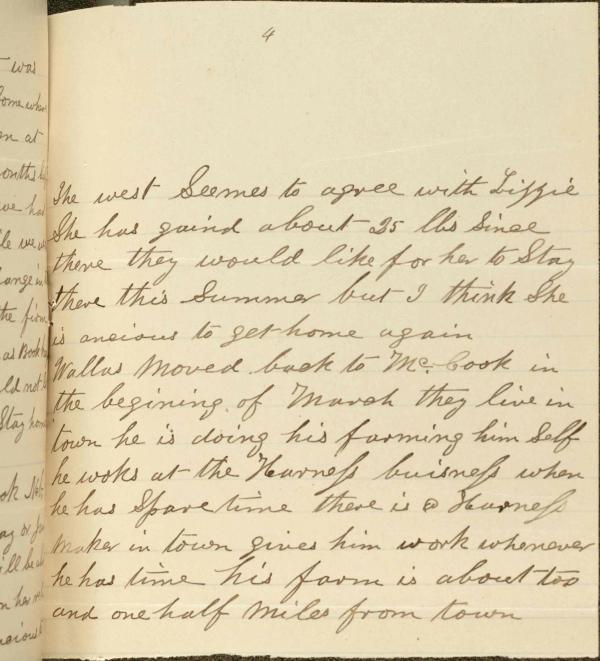 4
t was
ome wher
en at
onths
ve ha
le we w
hange in
the firm
as Book
ld not
Stay hom
ok Neb
ay or
ill be a
n her
ncious
The west Seemes to agree with Lizzie
She has gaind about 25 lbs Since
there they would like for her to Stay
there this Summer but I think She
is ancious to get home again
Wallas Moved back to Mc. Cook in
the begining of March they live in
town he is doing his farming him Self
he woks at the Harness buisness when
he has Spare time there is a Harness
Maker in town gives him work whenever
he has time his farm is about too
and one half Miles from town